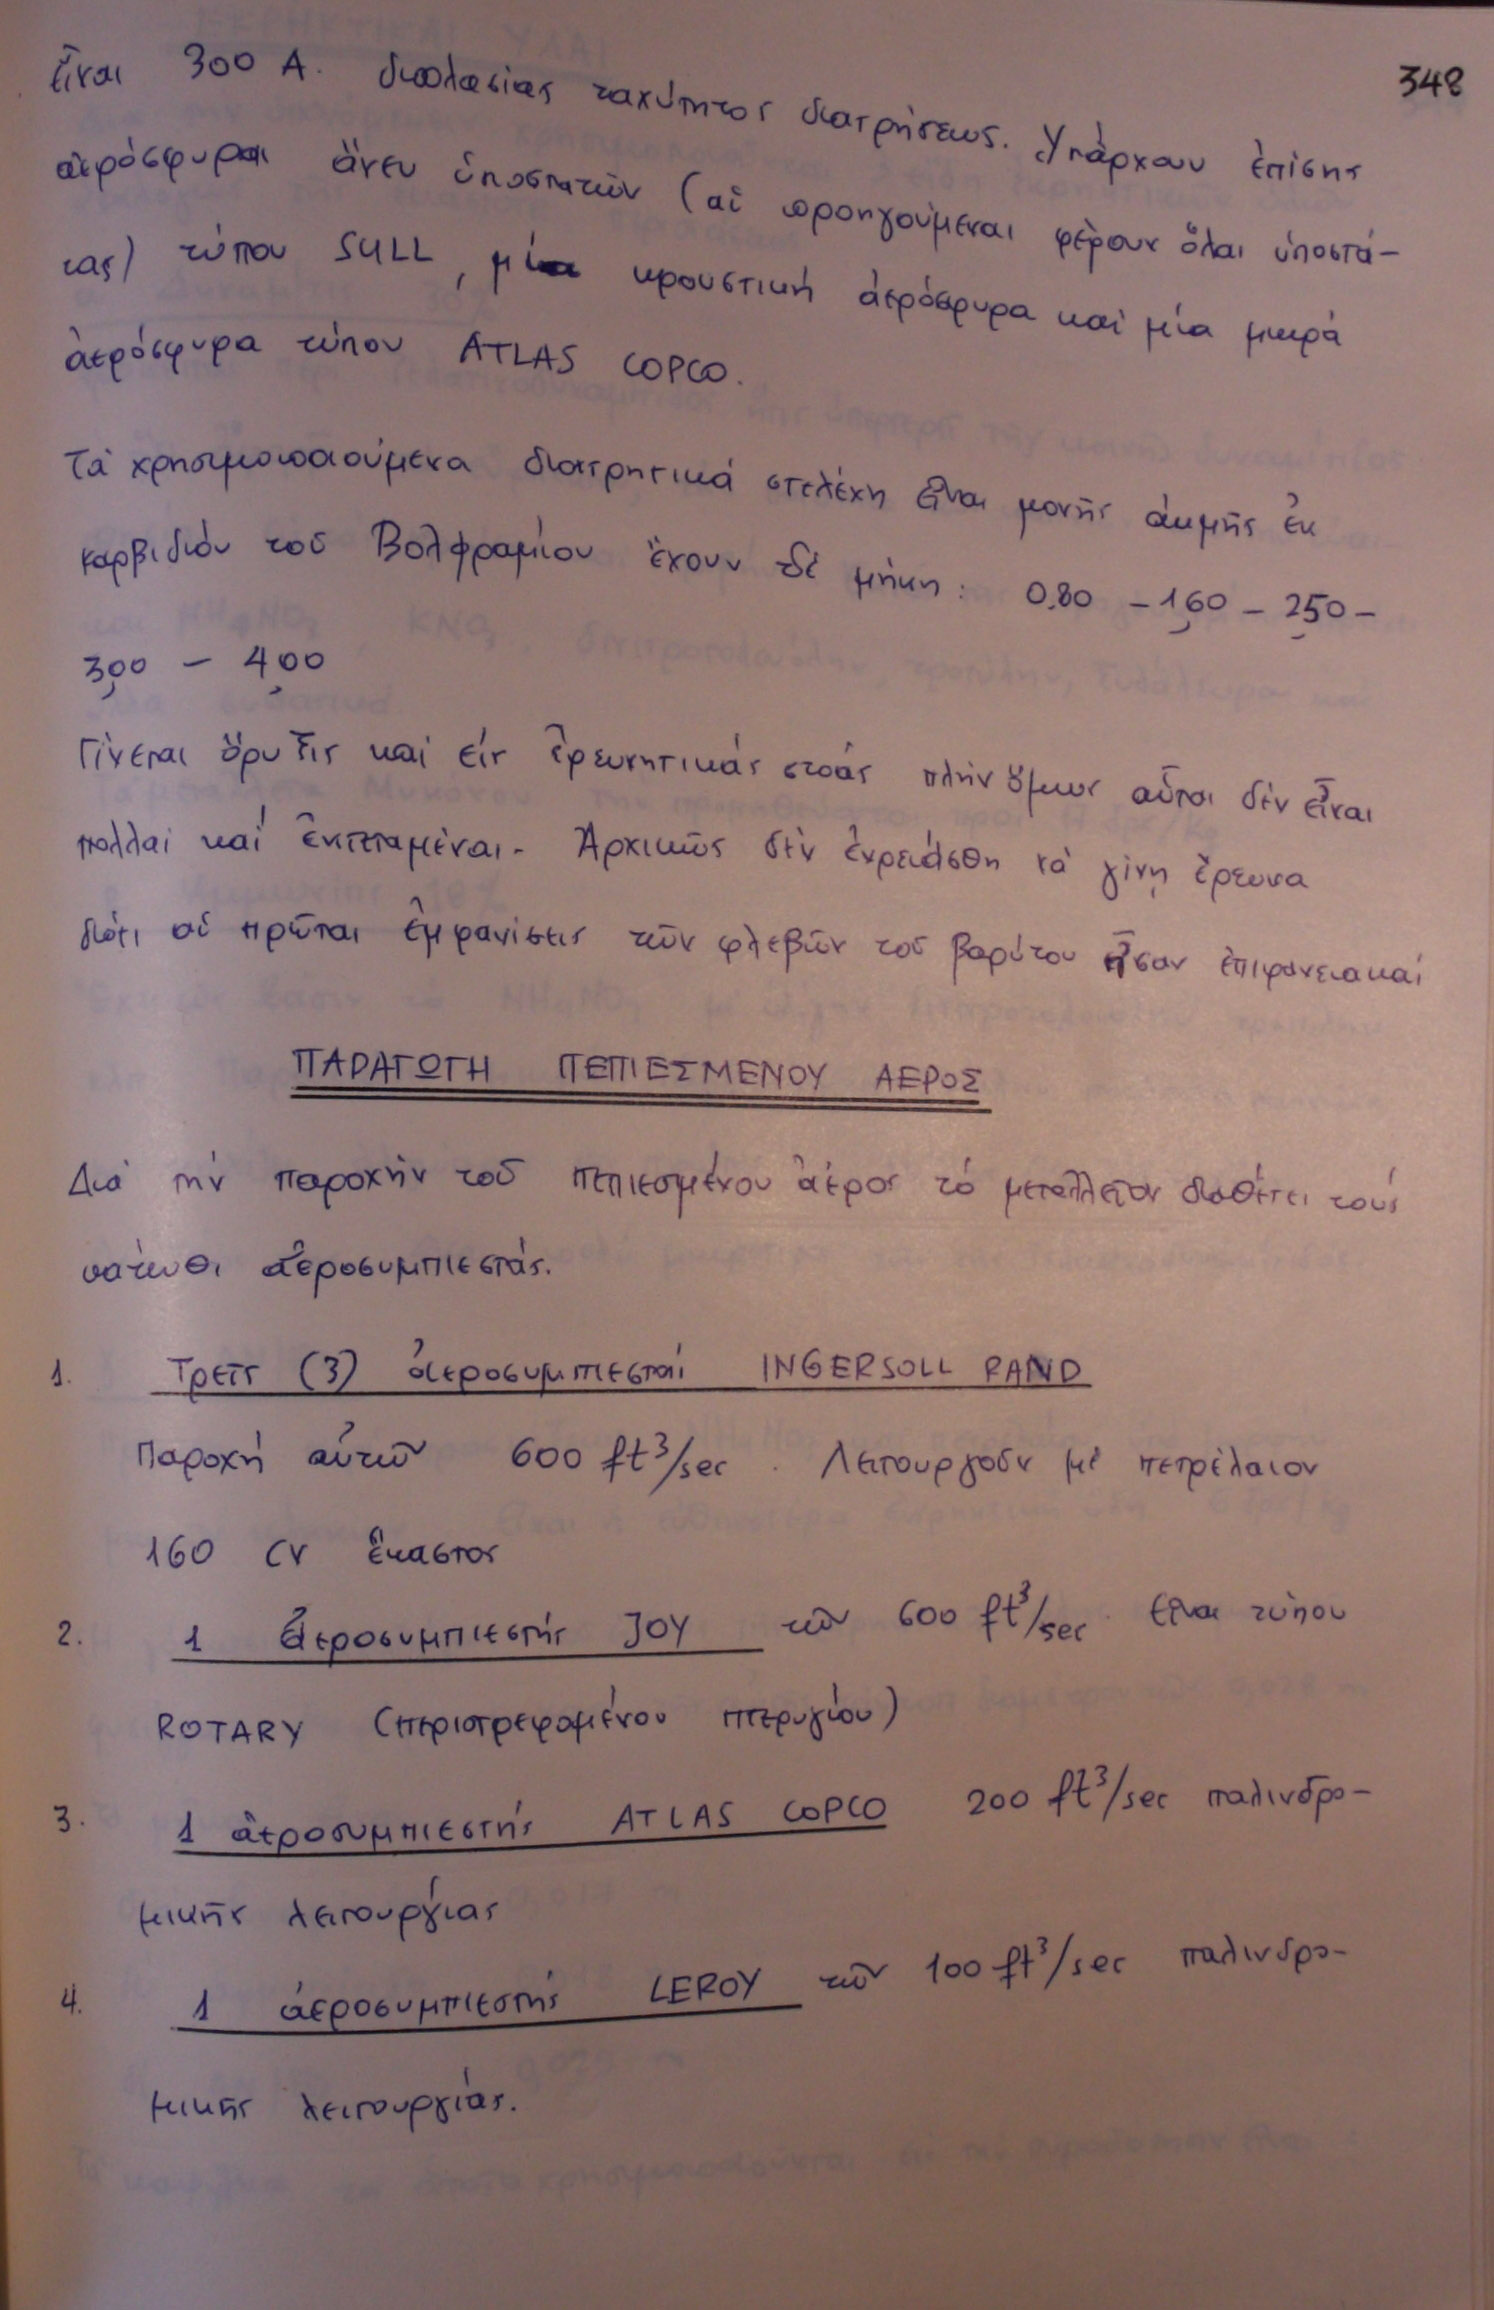 348
εἶναι 300 Α. διπλασίας ταχύτητος διατρήσεως. Ὑπάρχουν ἐπίσης
ἀερόσφυραι ἄνευ ὑποστατῶν (αἱ προηγούμεναι φέρουν ὅλαι ὑποστά-
τας) τύπου SULL, μία κρουστική ἀερόσφυρα καί μία μικρά
ἀερόσφυρα τύπου ATLAS COPCO.
Τά χρησιμοποιούμενα διατρητικά στελέχη εἶναι μονῆς ἀκμῆς ἐκ
καρβιδίου τοῦ Βολφραμίου ἔχουν δέ μήκη: 0,80 – 1,60 – 2,50 –
3,00 – 4,00
Γίνεται ὄρυξις καί εἰς ἐρευνητικάς στοάς πλήν ὅμως αὗται δέν εἶναι
πολλαί καί ἐκτεταμέναι. Ἀρχικῶς δέν ἐχρειάσθη νά γίνῃ ἔρευνα
διότι αἱ πρῶται ἐμφανίσεις τῶν φλεβῶν τοῦ βαρύτου ἦσαν ἐπιφανειακαί
ΠΑΡΑΓΩΓΗ ΠΕΠΙΕΣΜΕΝΟΥ ΑΕΡΟΣ
Διά τήν παροχήν τοῦ πεπιεσμένου ἀέρος τό μεταλλεῖον διαθέτει τούς
κάτωθι ἀεροσυμπιεστάς.
1. Τρεῖς (3) ἀεροσυμπιεσταί INGERSOLL RAND
Παροχή αὐτῶν 600 ft³/sec . Λειτουργοῦν μέ πετρέλαιον
160 CV ἕκαστος
2. 1 ἀεροσυμπιεστής JOY τῶν 600 ft³/sec. εἶναι τύπου
ROTARY (περιστρεφομένου πτερυγίου)
3. 1 ἀεροσυμπιεστής ATLAS COPCO 200 ft³/sec παλινδρο-
μικῆς λειτουργίας
4. 1 ἀεροσυμπιεστής LEROY τῶν 100 ft³/sec παλινδρο-
μικῆς λειτουργίας.